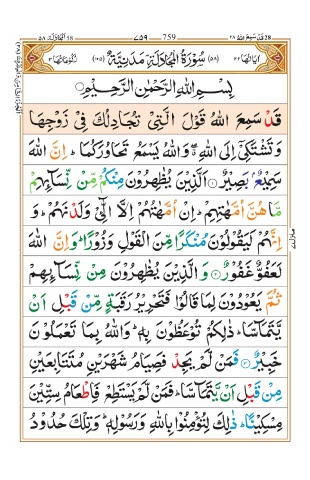 المجادلة ٥٨ 58 ٧٥٩ 759 28 قد سمع الله ٢٨
اٰیَاتُهَا ٢٢ (٥٨) سُوْرَةُ الْمُجَادَلَةِ مَدَنِیَّةٌ (١٠٥) رُكُوْعَاتُهَا ٣
بِسْمِ اللهِ الرَّحْمٰنِ الرَّحِیْمِ
قَدْ سَمِعَ اللهُ قَوْلَ الَّتِیْ تُجَادِلُكَ فِیْ زَوْجِهَا
وَتَشْتَكِیْۤ اِلَی اللهِ ۖۗ وَاللهُ یَسْمَعُ تَحَاوُرَكُمَا ؕ اِنَّ اللهَ
سَمِیْعٌۢ بَصِیْرٌ ۝١ اَلَّذِیْنَ یُظٰهِرُوْنَ مِنْكُمْ مِّنْ نِّسَآئِهِمْ
مَّا هُنَّ اُمَّهٰتِهِمْ ؕ اِنْ اُمَّهٰتُهُمْ اِلَّا الّٰٓـِٔیْ وَلَدْنَهُمْ ؕ وَ
اِنَّهُمْ لَیَقُوْلُوْنَ مُنْكَرًا مِّنَ الْقَوْلِ وَزُوْرًا ؕ وَاِنَّ اللهَ
لَعَفُوٌّ غَفُوْرٌ ۝٢ وَالَّذِیْنَ یُظٰهِرُوْنَ مِنْ نِّسَآئِهِمْ
ثُمَّ یَعُوْدُوْنَ لِمَا قَالُوْا فَتَحْرِیْرُ رَقَبَةٍ مِّنْ قَبْلِ اَنْ
یَّتَمَآسَّا ؕ ذٰلِكُمْ تُوْعَظُوْنَ بِهٖ ؕ وَاللهُ بِمَا تَعْمَلُوْنَ
خَبِیْرٌ ۝٣ فَمَنْ لَّمْ یَجِدْ فَصِیَامُ شَهْرَیْنِ مُتَتَابِعَیْنِ
مِنْ قَبْلِ اَنْ یَّتَمَآسَّا ۚ فَمَنْ لَّمْ یَسْتَطِعْ فَاِطْعَامُ سِتِّیْنَ
مِسْكِیْنًا ؕ ذٰلِكَ لِتُؤْمِنُوْا بِاللهِ وَرَسُوْلِهٖ ؕ وَتِلْكَ حُدُوْدُ